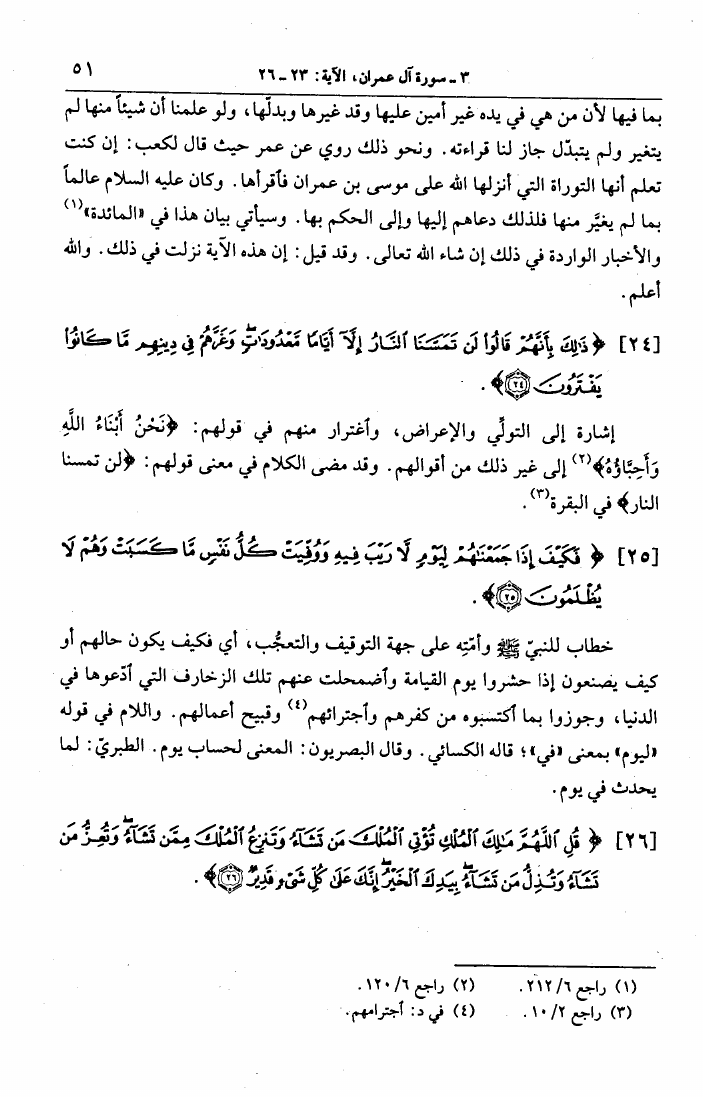 ٣ ـ سورة آل عمران، الآية: ٢٣ ـ ٢٦
٥١
بما فيها لأن من هي في يده غير أمين عليها وقد غيرها وبدلّها، ولو علمنا أن شيئاً منها لم
يتغير ولم يتبدّل جاز لنا قراءته. ونحو ذلك روي عن عمر حيث قال لكعب: إن كنت
تعلم أنها التوراة التي أنزلها الله على موسى بن عمران فٱقرأها. وكان عليه السلام عالماً
بما لم يغيَّر منها فلذلك دعاهم إليها وإلى الحكم بها. وسيأتي بيان هذا في «المائدة»(١)
والأخبار الواردة في ذلك إن شاء الله تعالى. وقد قيل: إن هذه الآية نزلت في ذلك. والله
أعلم.
[٢٤] ﴿ ذَٰلِكَ بِأَنَّهُمْ قَالُوا لَن تَمَسَّنَا ٱلنَّارُ إِلَّآ أَيَّامًا مَّعْدُودَاتٍۖ وَغَرَّهُمْ فِي دِينِهِم مَّا كَانُوا
يَفْتَرُونَ ٢٤﴾.
إشارة إلى التولّي والإعراض، وٱغترار منهم في قولهم: ﴿نَحْنُ أَبْنَاءُ اللَّهِ
وَأَحِبَّاؤُهُ﴾(٢) إلى غير ذلك من أقوالهم. وقد مضى الكلام في معنى قولهم: ﴿لن تمسنا
النار﴾ في البقرة(٣).
[٢٥] ﴿ فَكَيْفَ إِذَا جَمَعْنَٰهُمْ لِيَوْمٍ لَّا رَيْبَ فِيهِ وَوُفِّيَتْ كُلُّ نَفْسٍ مَّا كَسَبَتْ وَهُمْ لَا
يُظْلَمُونَ ٢٥﴾.
خطاب للنبيّ ﷺ وأمّتِه على جهة التوقيف والتعجُّب، أي فكيف يكون حالهم أو
كيف يصنعون إذا حشروا يوم القيامة وٱضمحلت عنهم تلك الزخارف التي ٱدّعوها في
الدنيا، وجوزوا بما ٱكتسبوه من كفرهم وٱجترائهم(٤) وقبيح أعمالهم. واللام في قوله
«ليوم» بمعنى «في»؛ قاله الكسائي. وقال البصريون: المعنى لحساب يوم. الطبريّ: لما
يحدث في يوم.
[٢٦] ﴿ قُلِ ٱللَّهُمَّ مَٰلِكَ ٱلْمُلْكِ تُؤْتِي ٱلْمُلْكَ مَن تَشَآءُ وَتَنزِعُ ٱلْمُلْكَ مِمَّن تَشَآءُ وَتُعِزُّ مَن
تَشَآءُ وَتُذِلُّ مَن تَشَآءُۖ بِيَدِكَ ٱلْخَيْرُۖ إِنَّكَ عَلَىٰ كُلِّ شَىْءٍ قَدِيرٌ ٢٦﴾.
(١) راجع ٢١٢/٦. (٢) راجع ١٢٠/٦.
(٣) راجع ١٠/٢. (٤) في د: ٱجترامهم.